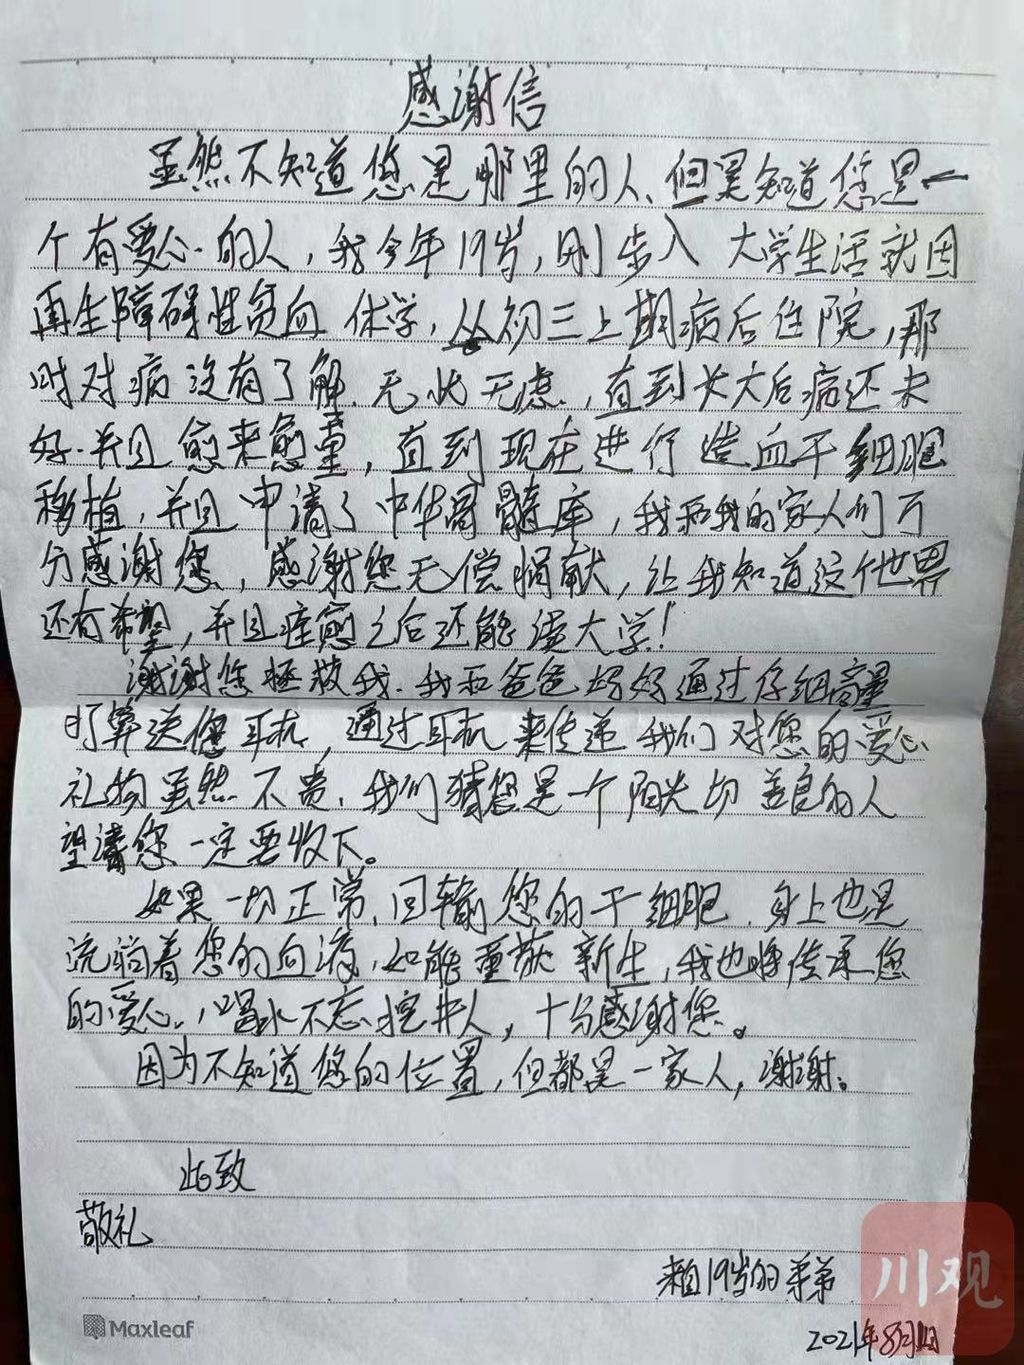 感谢信
虽然不知道您是哪里的人、但是知道您是一
个有爱心的人，我今年19岁，刚步入大学生活就因
再生障碍性贫血休学，从初三上期病后住院，那
时对病没有了解、无忧无虑，直到长大后病还未
好.并且愈来愈重，直到现在进行造血干细胞
移植，并且申请了中华骨髓库，我和我的家人们万
分感谢您，感谢您无偿捐献，让我知道这个世界
还有希望，并且痊愈之后还能读大学！
谢谢您拯救我.我和爸爸妈妈通过仔细商量
打算送您耳机，通过耳机来传递我们对您的爱心
礼物虽然不贵、我们猜您是一个阳光切善良的人
望请您一定要收下。
如果一切正常、回输您的干细胞.身上也是
流淌着您的血液，如能重获新生，我也将传承您
的爱心.喝水不忘挖井人，十分感谢您。
因为不知道您的位置，但都是一家人，谢谢。
此致
敬礼
来自19岁的弟弟
2021年8月
Maxleaf
川观